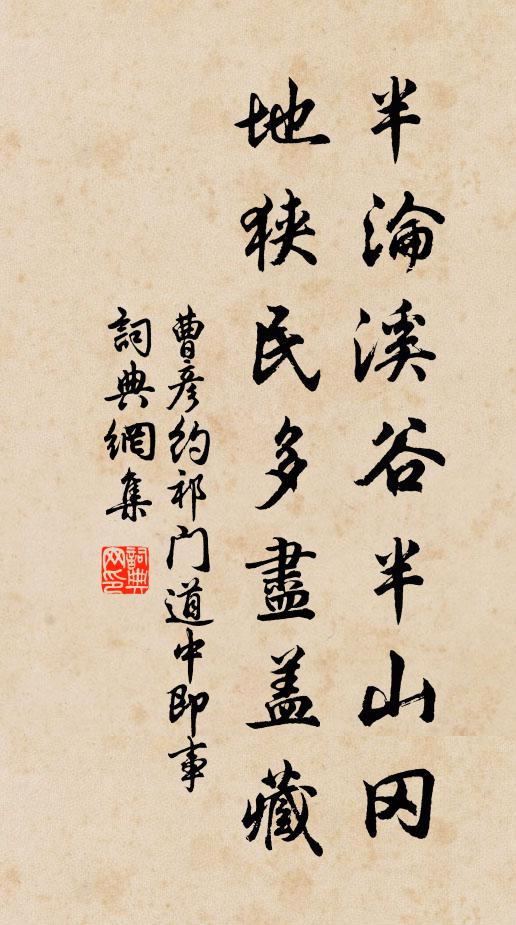 半淪溪谷半山冈
地狹民多盡盖藏
曹彦约祁门道中即事
詞典網集
詞典网印